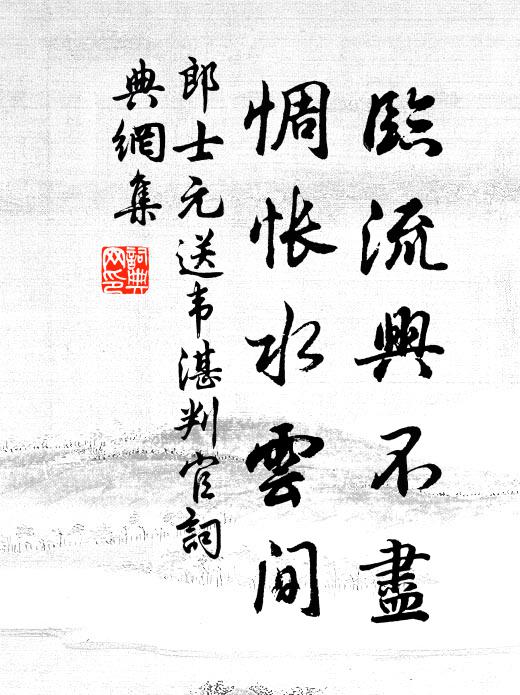 臨流興不盡
惆悵水雲間
郎士元送韦湛判官詞
典網集
詞典
网印